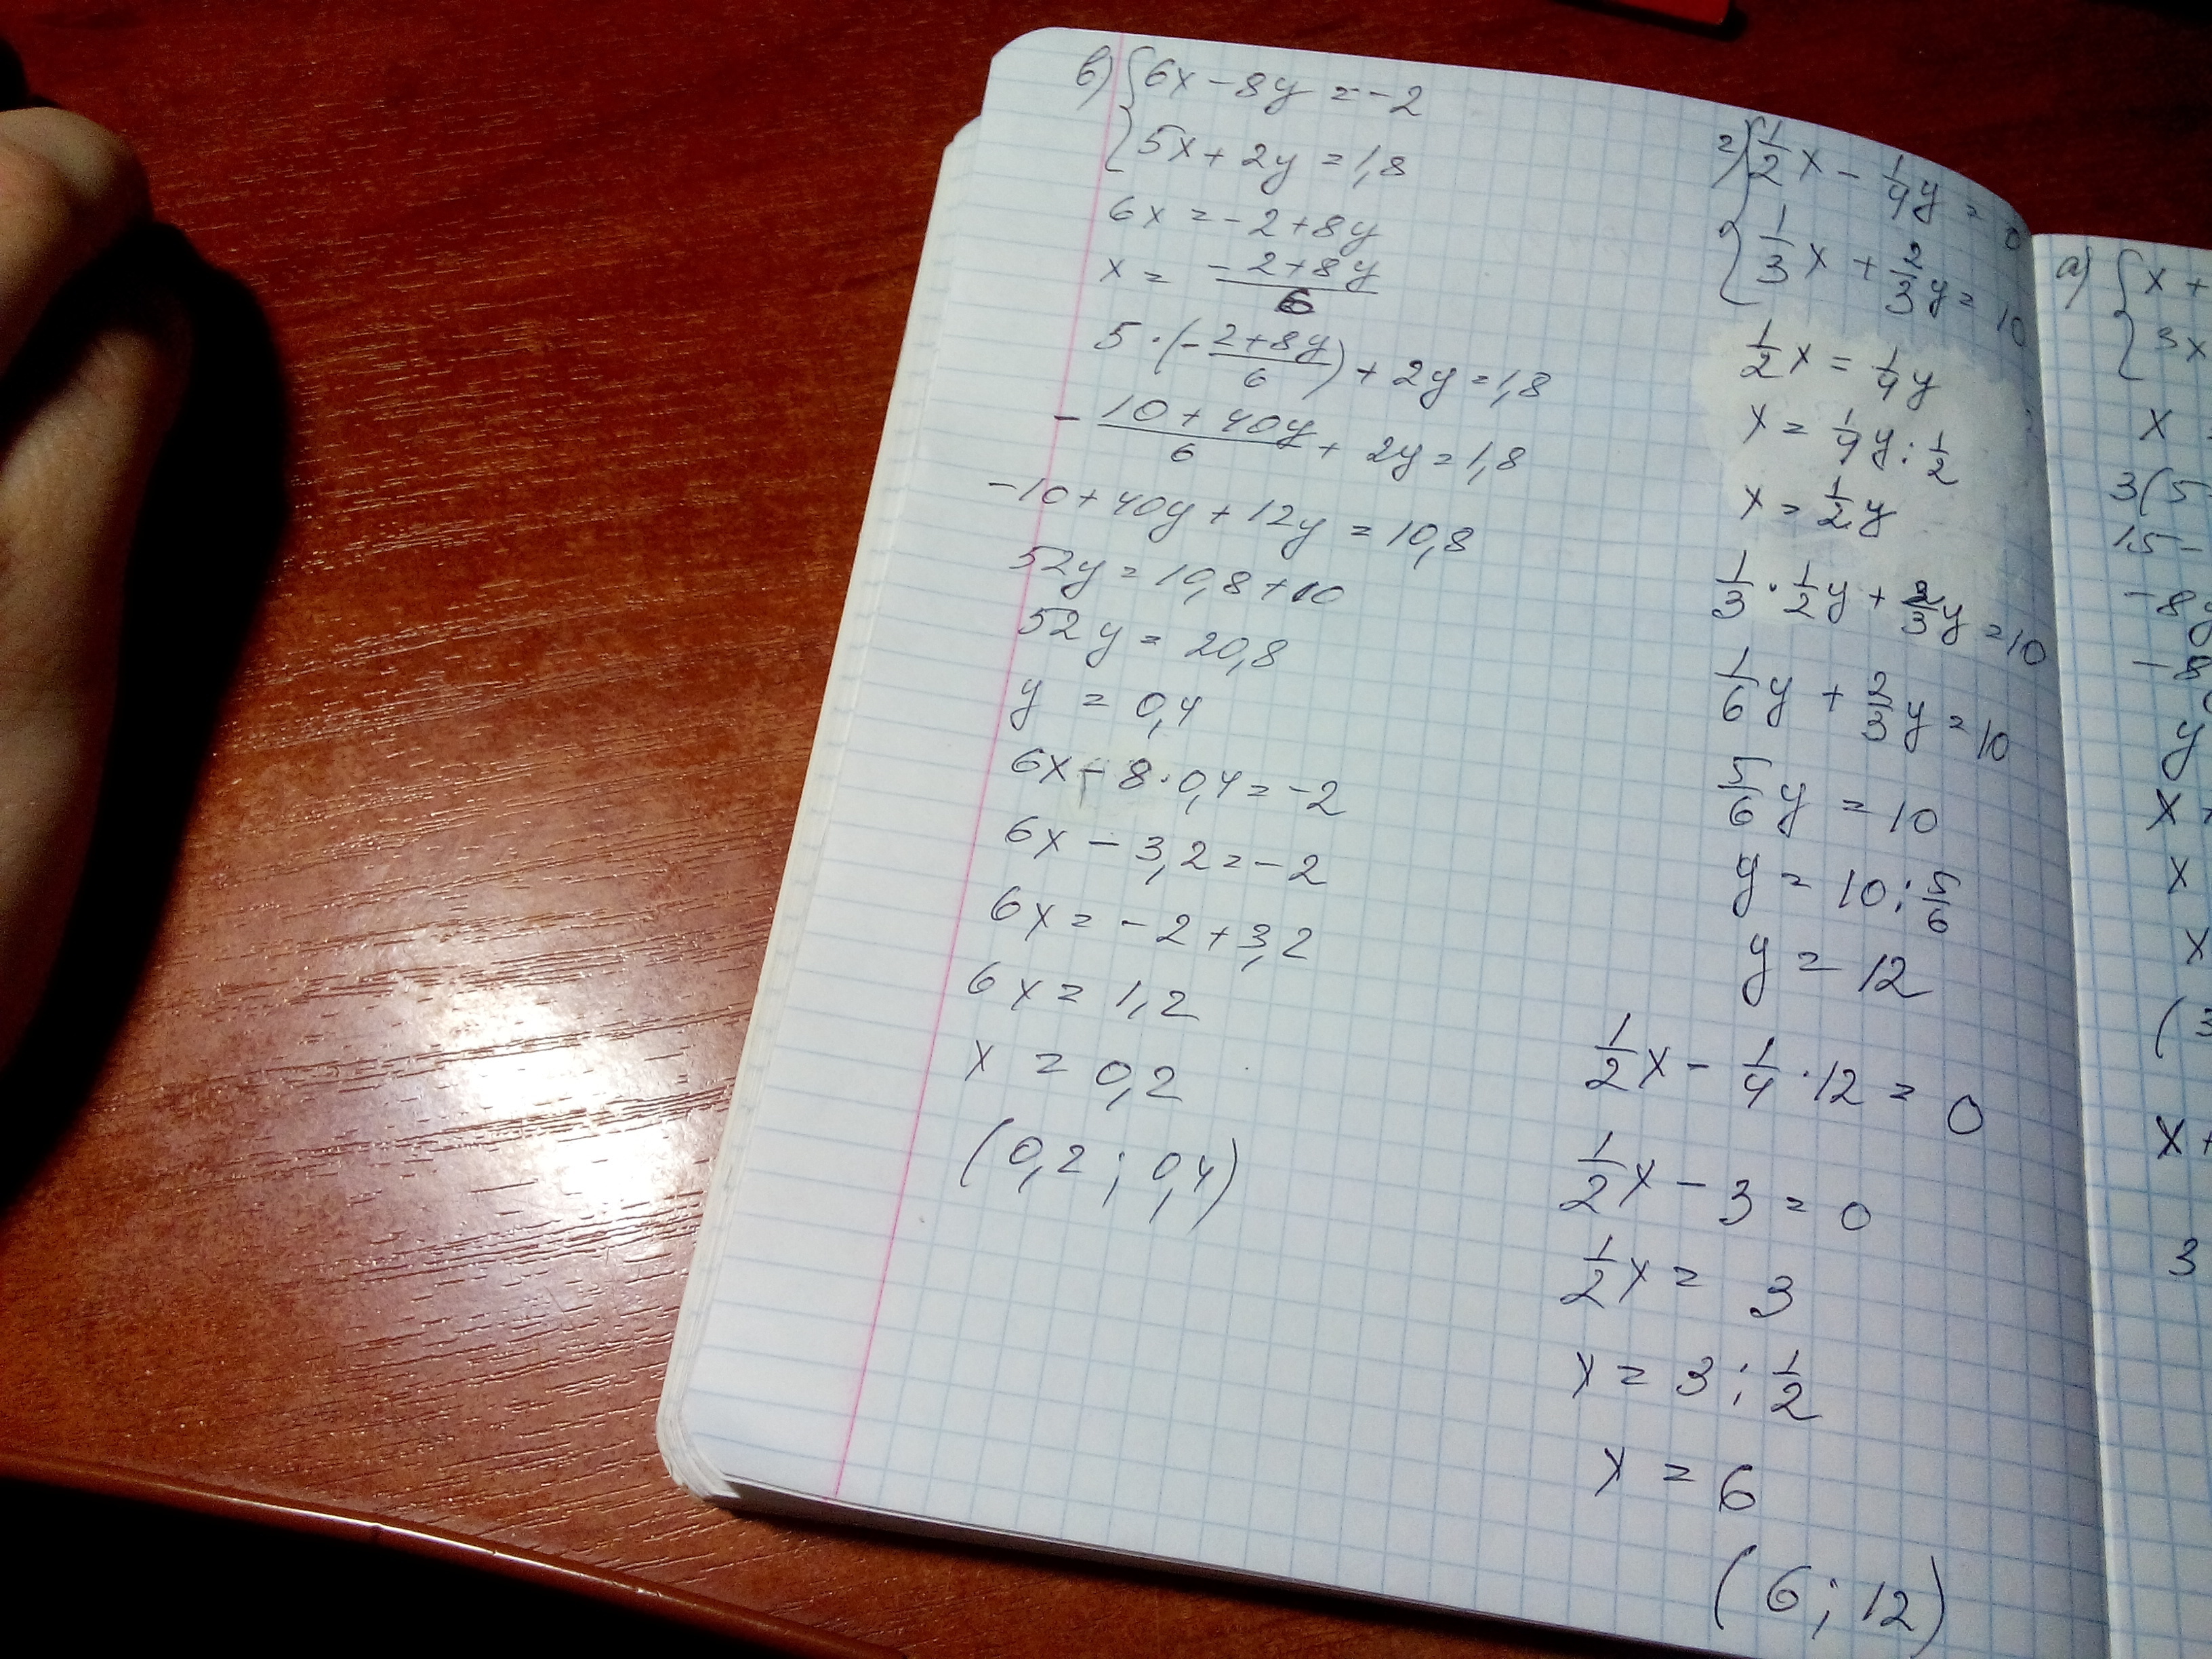 в) { 6x − 8y = −2
{ 5x + 2y = 1,8
6x = −2 + 8y
x = −2+8y/6
5 · (−2+8y/6) + 2y = 1,8
−10+40y/6 + 2y = 1,8
−10 + 40y + 12y = 10,8
52y = 10,8 + 10
52y = 20,8
y = 0,4
6x − 8 · 0,4 = −2
6x − 3,2 = −2
6x = −2 + 3,2
6x = 1,2
x = 0,2
(0,2 ; 0,4)
г) { 1/2 x − 1/4 y = 0
{ 1/3 x + 2/3 y = 10
1/2 x = 1/4 y
x = 1/4 y : 1/2
x = 1/2 y
1/3 · 1/2 y + 2/3 y = 10
1/6 y + 2/3 y = 10
5/6 y = 10
y = 10 : 5/6
y = 12
1/2 x − 1/4 · 12 = 0
1/2 x − 3 = 0
1/2 x = 3
x = 3 : 1/2
x = 6
(6 ; 12)
а) { x +
{ 3x
x =
3(5
15 −
−8y
−8
y
x =
x
x
(3
x +
3